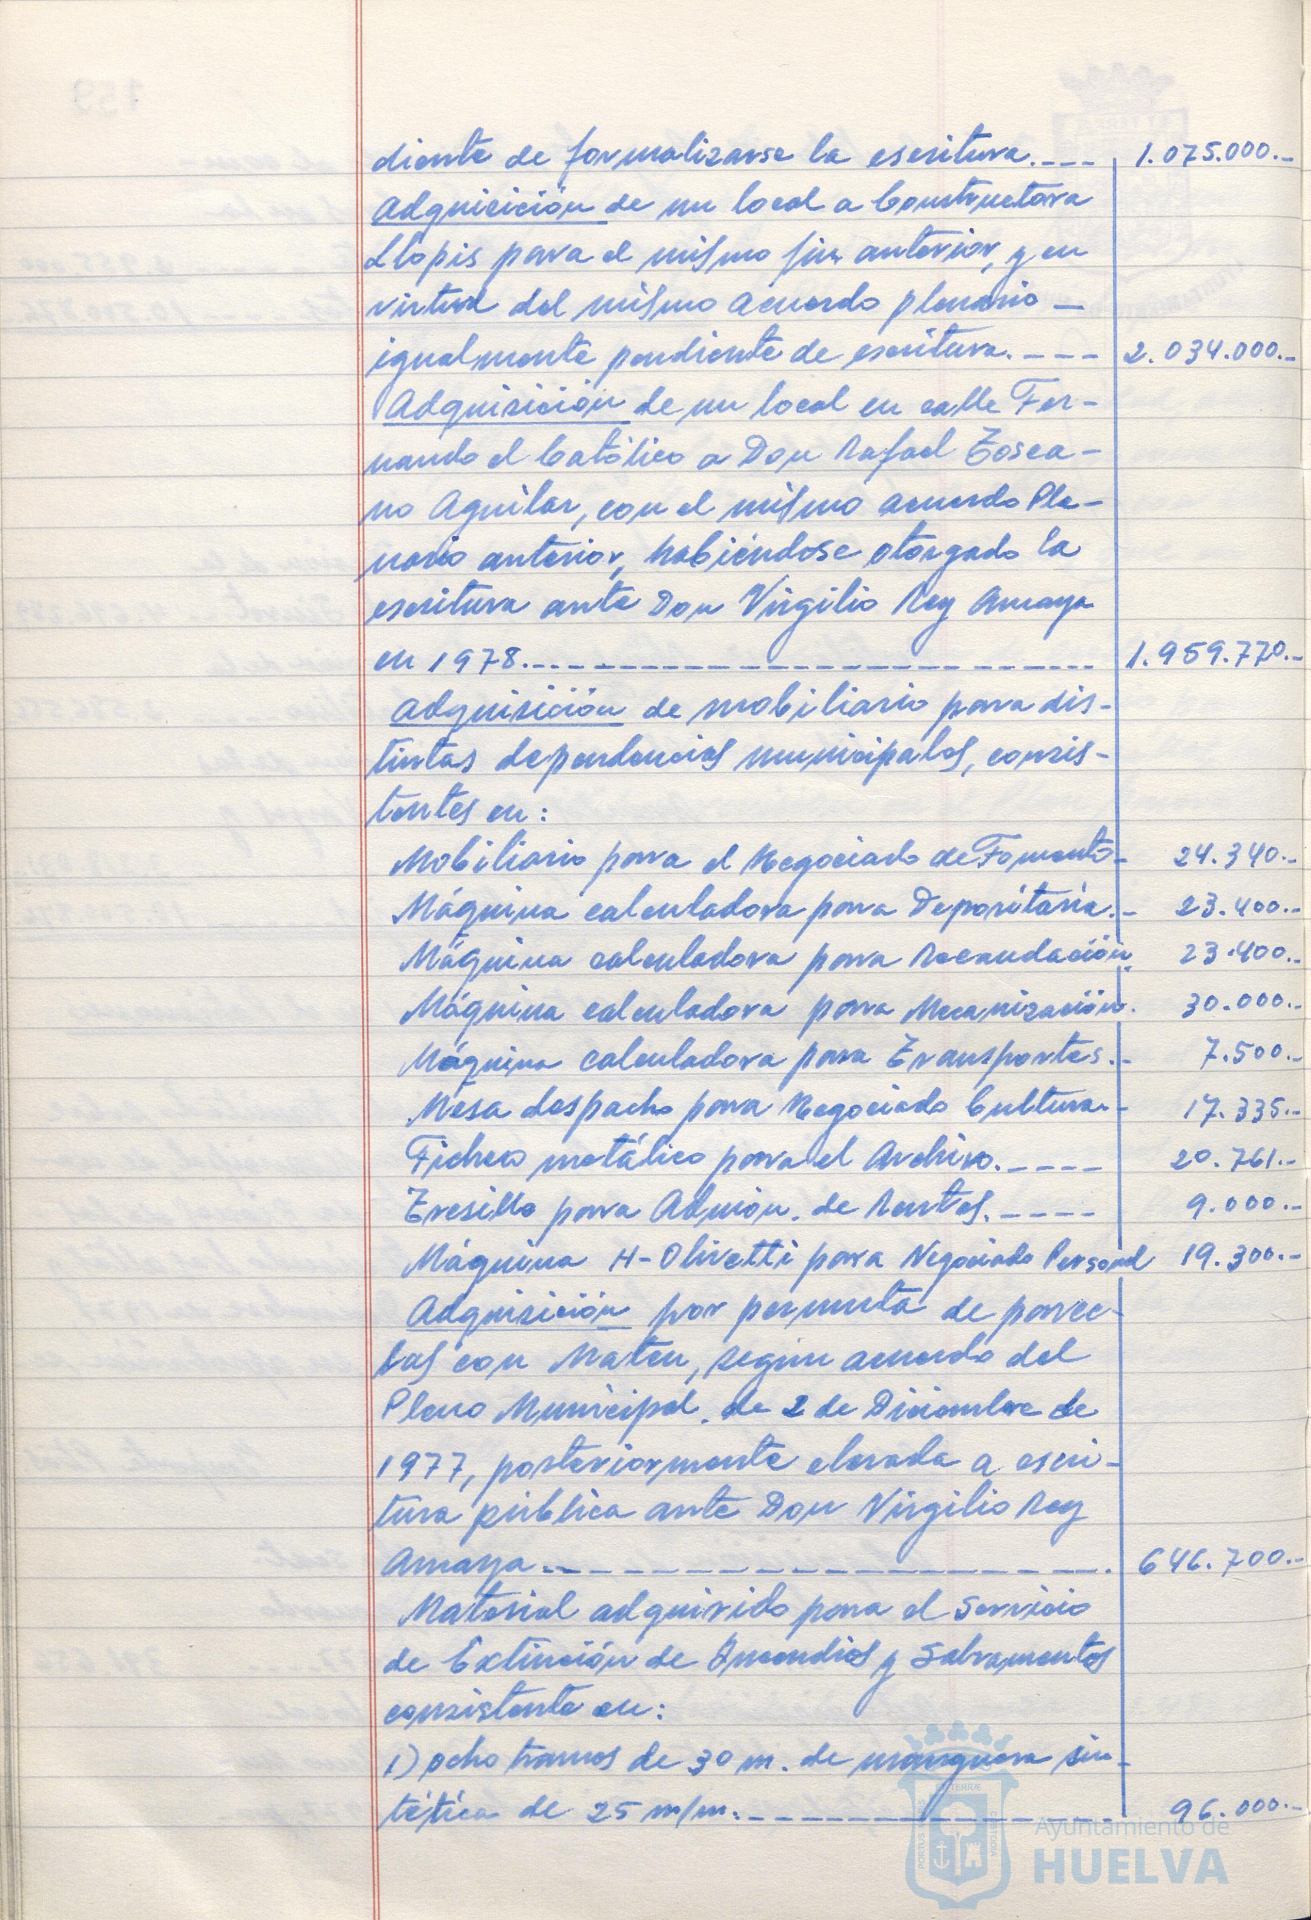 diente de formalizarse la escritura.--- 1.075.000.-
Adquisición de un local a Constructora
Llopis para el mismo fin anterior, y en
virtud del mismo acuerdo plenario —
igualmente pendiente de escritura. --- 2.034.000.-
Adquisición de un local en calle Fer-
nando el Católico a Don Rafael Tosca-
no Aguilar, con el mismo acuerdo Ple-
nario anterior, habiéndose otorgado la
escritura ante Don Virgilio Rey Amaya
en 1978.------------------- 1.959.770.-
Adquisición de mobiliario para dis-
tintas dependencias municipales, consis-
tentes en:
Mobiliario para el Negociado de Fomento- 24.340.-
Máquina calculadora para Depositaría.- 23.400.-
Máquina calculadora para Recaudación. 23.400.-
Máquina calculadora para Mecanización. 30.000.-
Máquina calculadora para Transportes.- 7.500.-
Mesa despacho para Negociado Cultura.- 17.335.-
Fichero metálico para el Archivo.---- 20.761.-
Tresillo para Admón. de Rentas.---- 9.000.-
Máquina H-Olivetti para Negociado Personal 19.300.-
Adquisición por permuta de parce-
las con Mateu, según acuerdo del
Pleno Municipal. de 2 de Diciembre de
1977, posteriormente elevada a escri-
tura pública ante Don Virgilio Rey
Amaya.------------------. 646.700.-
Material adquirido para el Servicio
de Extinción de Incendios y Salvamentos
consistente en:
1) ocho tramos de 30 m. de manguera sin-
tética de 25 m/m.------------- 96.000.-
Ayuntamiento de
HUELVA